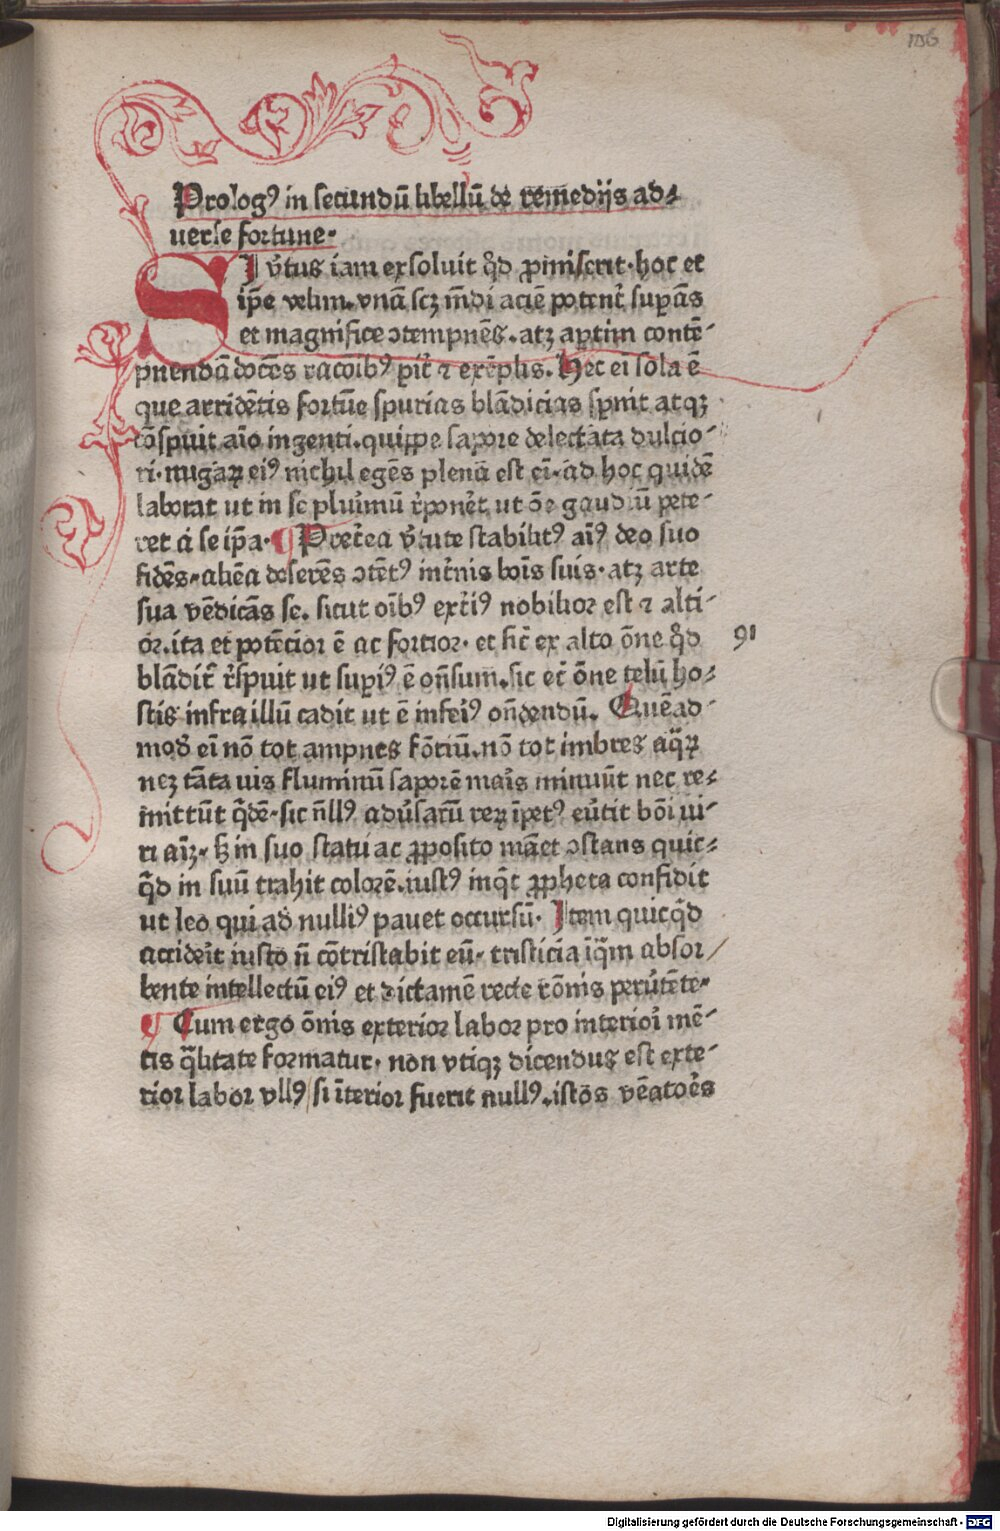 106
Prologꝰ in secundū libellū de remedijs ad⸗
uerse fortune.
SI v̓tus iam exsoluit qd̓ ꝓmiserit. hoc et
ip̄e velim. vnā scꝫ mūdi aciē potent̓ suꝑās
et magnifice ↄtempnēs. atꝫ aꝑtim contē⸗
pnendā docēs racōibꝰ ꝑit̓ ⁊ exēplis. Hec ei sola ē
que arridētis fortūe spurias blādicias sꝑnit atqꝫ
cōspuit aīo ingenti. quippe sapore delectata dulcio⸗
ri. nugaꝝ eiꝰ nichil egēs plena est ei. ad hoc quidē
laborat ut in se plurimū r̓ponēt ut ōe gaudiū pete⸗
ret a se ip̄a. ¶ Pret̓ea v̓tute stabilitꝰ aīꝰ deo suo
fidēs. aliēa deserēs ↄtētꝰ int̓nis boīs suis. atꝫ arte
sua vēdicās se. sicut oībꝰ ext̓iꝰ nobilior est ⁊ alti⸗
or. ita et potēcior ē ac fortior. et sic̓ ex alto ōne qd̓
blādit̓ r̓spuit ut suꝑiꝰ ē oñsum. sic et̓ ōne telū ho⸗
stis infra illū cadit ut ē infeiꝰ oñdendū. Quēad⸗
mod̓ ei nō tot ampnes fōtiū. nō tot imbres aq̄ꝝ
neꝫ tāta uis fluminū saporē maris minuūt nec re⸗
mittūt q̄dē. sic n̄llꝰ adu̓saꝝ reꝝ īpetꝰ eu̓tit boī ui⸗
ri aīꝫ. sꝫ in suo statu ac ꝓposito māet ↄstans quic⸗
qd̓ in suū trahit colorē. iustꝰ inq̄t ꝓpheta confidit
ut leo qui ad nulliꝰ pauet occursū. Item quicqd̓
accideīt iusto n̄ cōtristabit eū. tristicia īq̄m absor
bente intellectū eiꝰ et dictamē recte rōnis peru̓tēte.
¶ Cum ergo ōnis exterior labor pro interiori mē⸗
tis q̄litate formatur. non vtiqꝫ dicendus est exte⸗
rior labor vllꝰ si īterior fuerit nullꝰ. istos vēatoēs
91
Digitalisierung gefördert durch die Deutsche Forschungsgemeinschaft - DFG